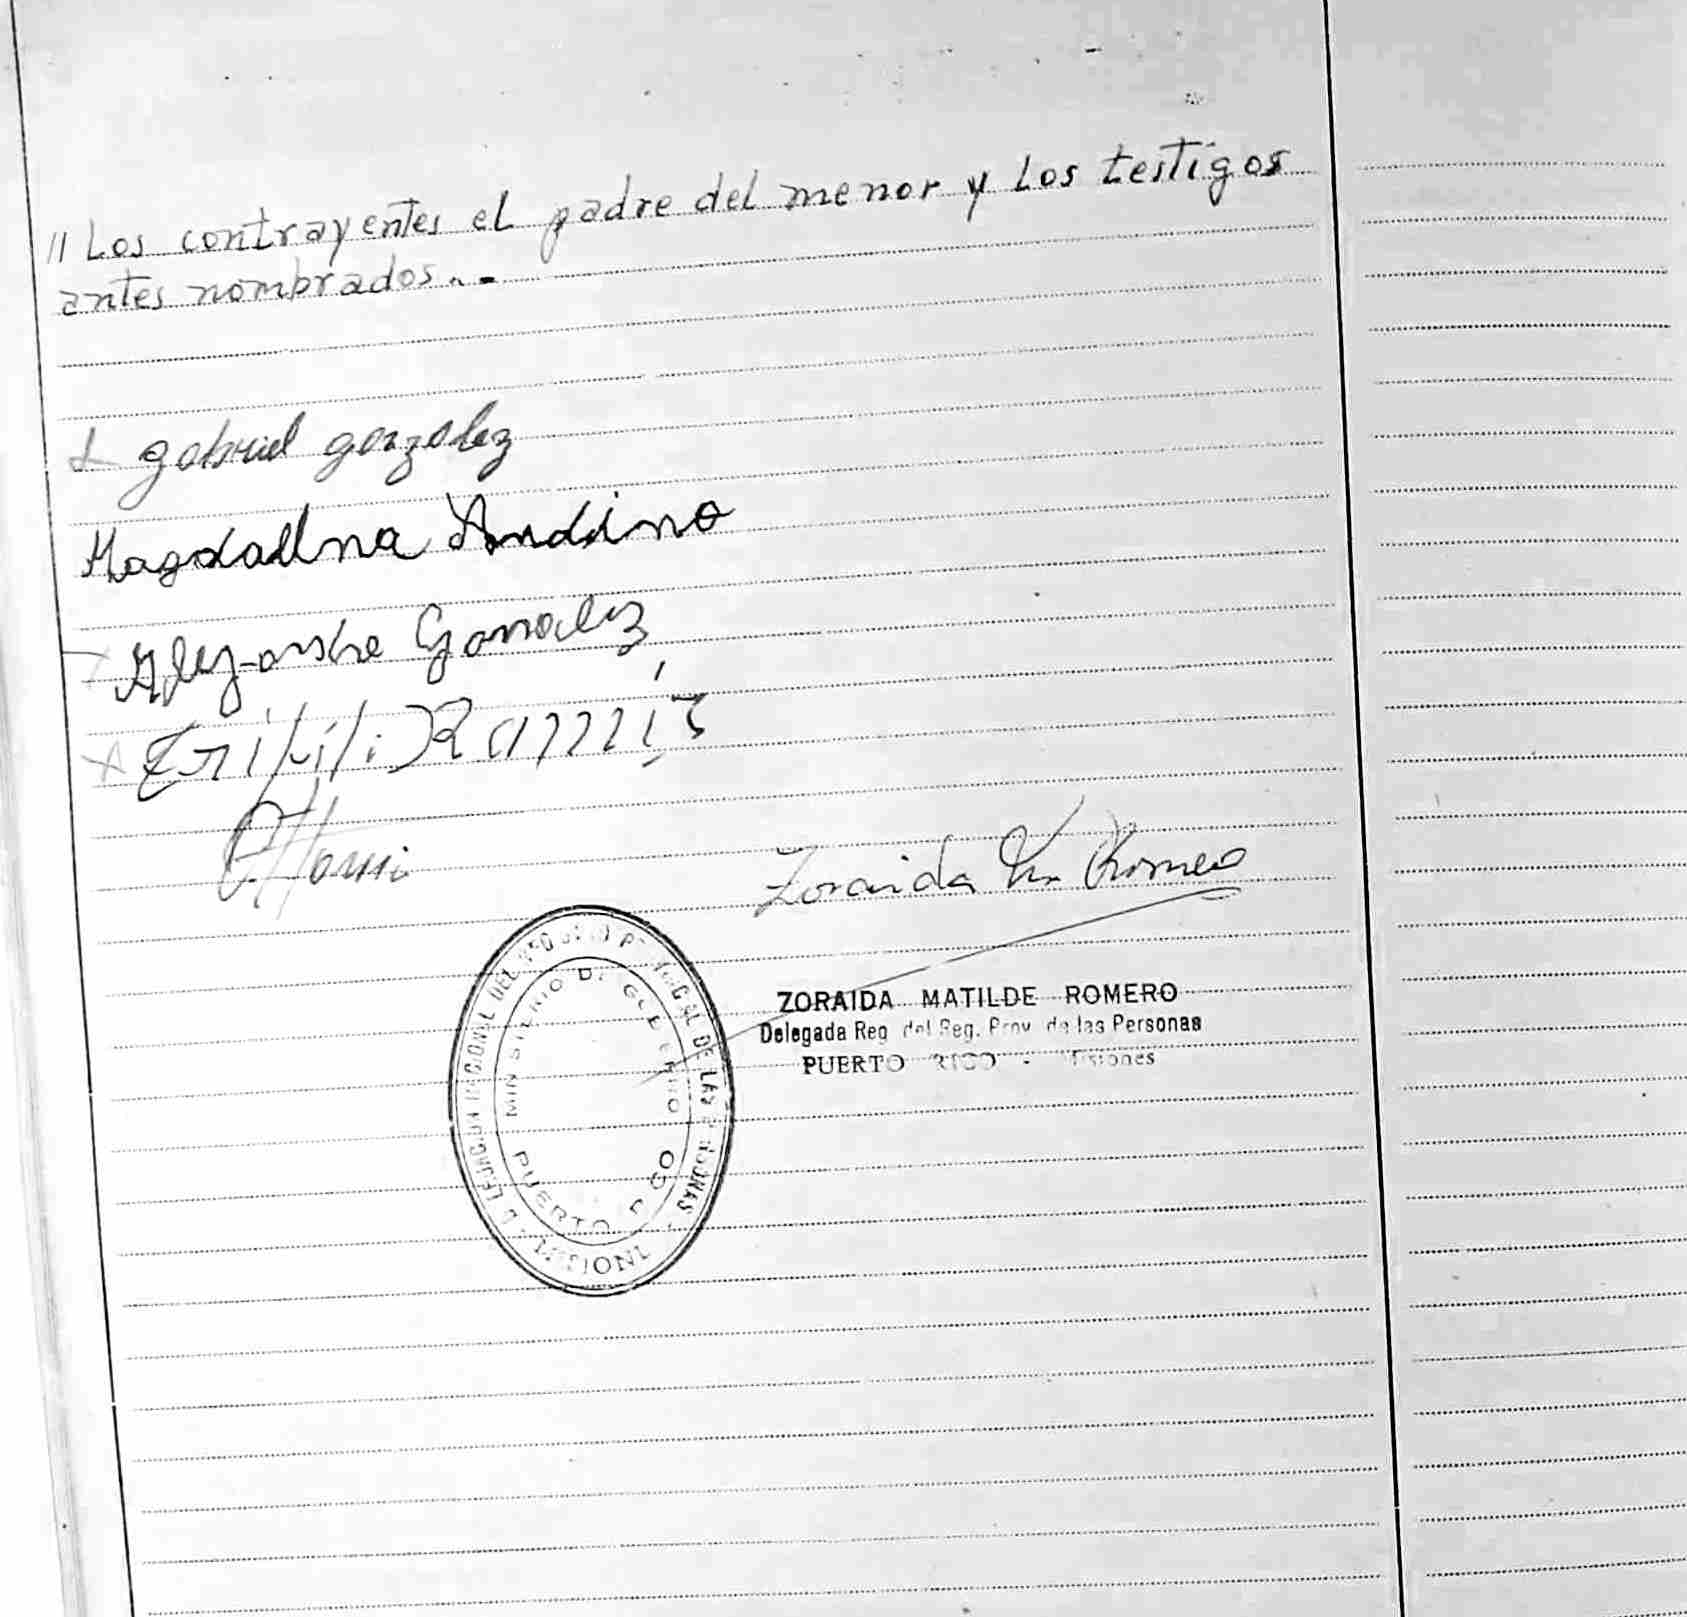 // Los contrayentes el padre del menor y Los testigos
antes nombrados.-
gabriel gonzalez
Magdallna Andino
Alejandro Gonzalez
Zoraida M. Romero
DELEGACION REGIONAL DEL REGISTRO PROVINCIAL DE LAS PERSONAS
MINISTERIO DE GOBIERNO
PUERTO RICO
MISIONES
ZORAIDA MATILDE ROMERO
Delegada Reg del Reg. Prov. de las Personas
PUERTO RICO - Misiones